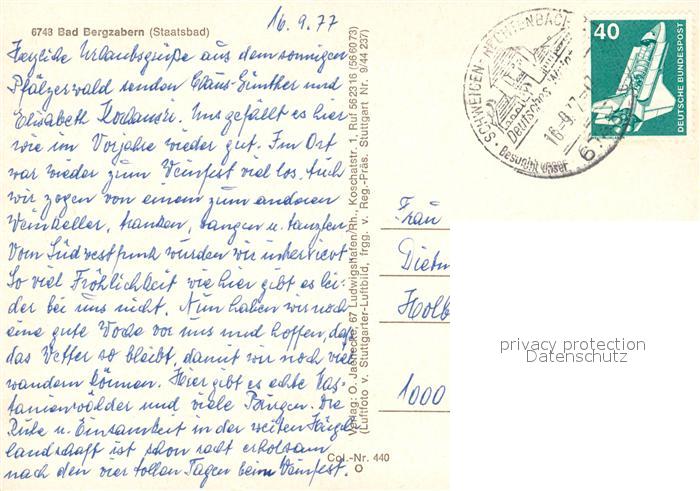 6748 Bad Bergzabern (Staatsbad)
16.9.77
Herzliche Urlaubsgrüße aus dem sonnigen
Pfälzerwald senden Claus-Günther und
Elisabeth. Uns gefällt es hier
wie im Vorjahre wieder gut. Im Ort
war wieder zum Weinfest viel los. Auch
wir zogen von einem zum anderen
Weinkeller, tranken, sangen u. tanzten.
Vom Südwestfunk wurden wir interviewt
So viel Fröhlichkeit wie hier gibt es lei-
der bei uns nicht. Nun haben wir noch
eine gute Woche vor uns und hoffen, daß
das Wetter so bleibt, damit wir noch viel
wandern können. Hier gibt es echte Kas-
tanienwälder und viele Burgen. Die
Ruhe u. Einsamkeit in der weiten Hügel-
landschaft ist schon recht erholsam
nach den vier tollen Tagen beim Weinfest.
Verlag: O. Jaenecke, 67 Ludwigshafen/Rh., Koschatstr. 1, Ruf 562316 (566073)
(Luftfoto v. Stuttgarter-Luftbild, frgg. v. Reg.-Präs. Stuttgart Nr. 9/44 237)
Col.-Nr. 440
SCHWEIGEN-RECHTENBACH
Deutsches
16.-9.77
Besucht unser
67
40
DEUTSCHE BUNDESPOST
Frau
Dietm
Holb
1000
privacy protection
Datenschutz